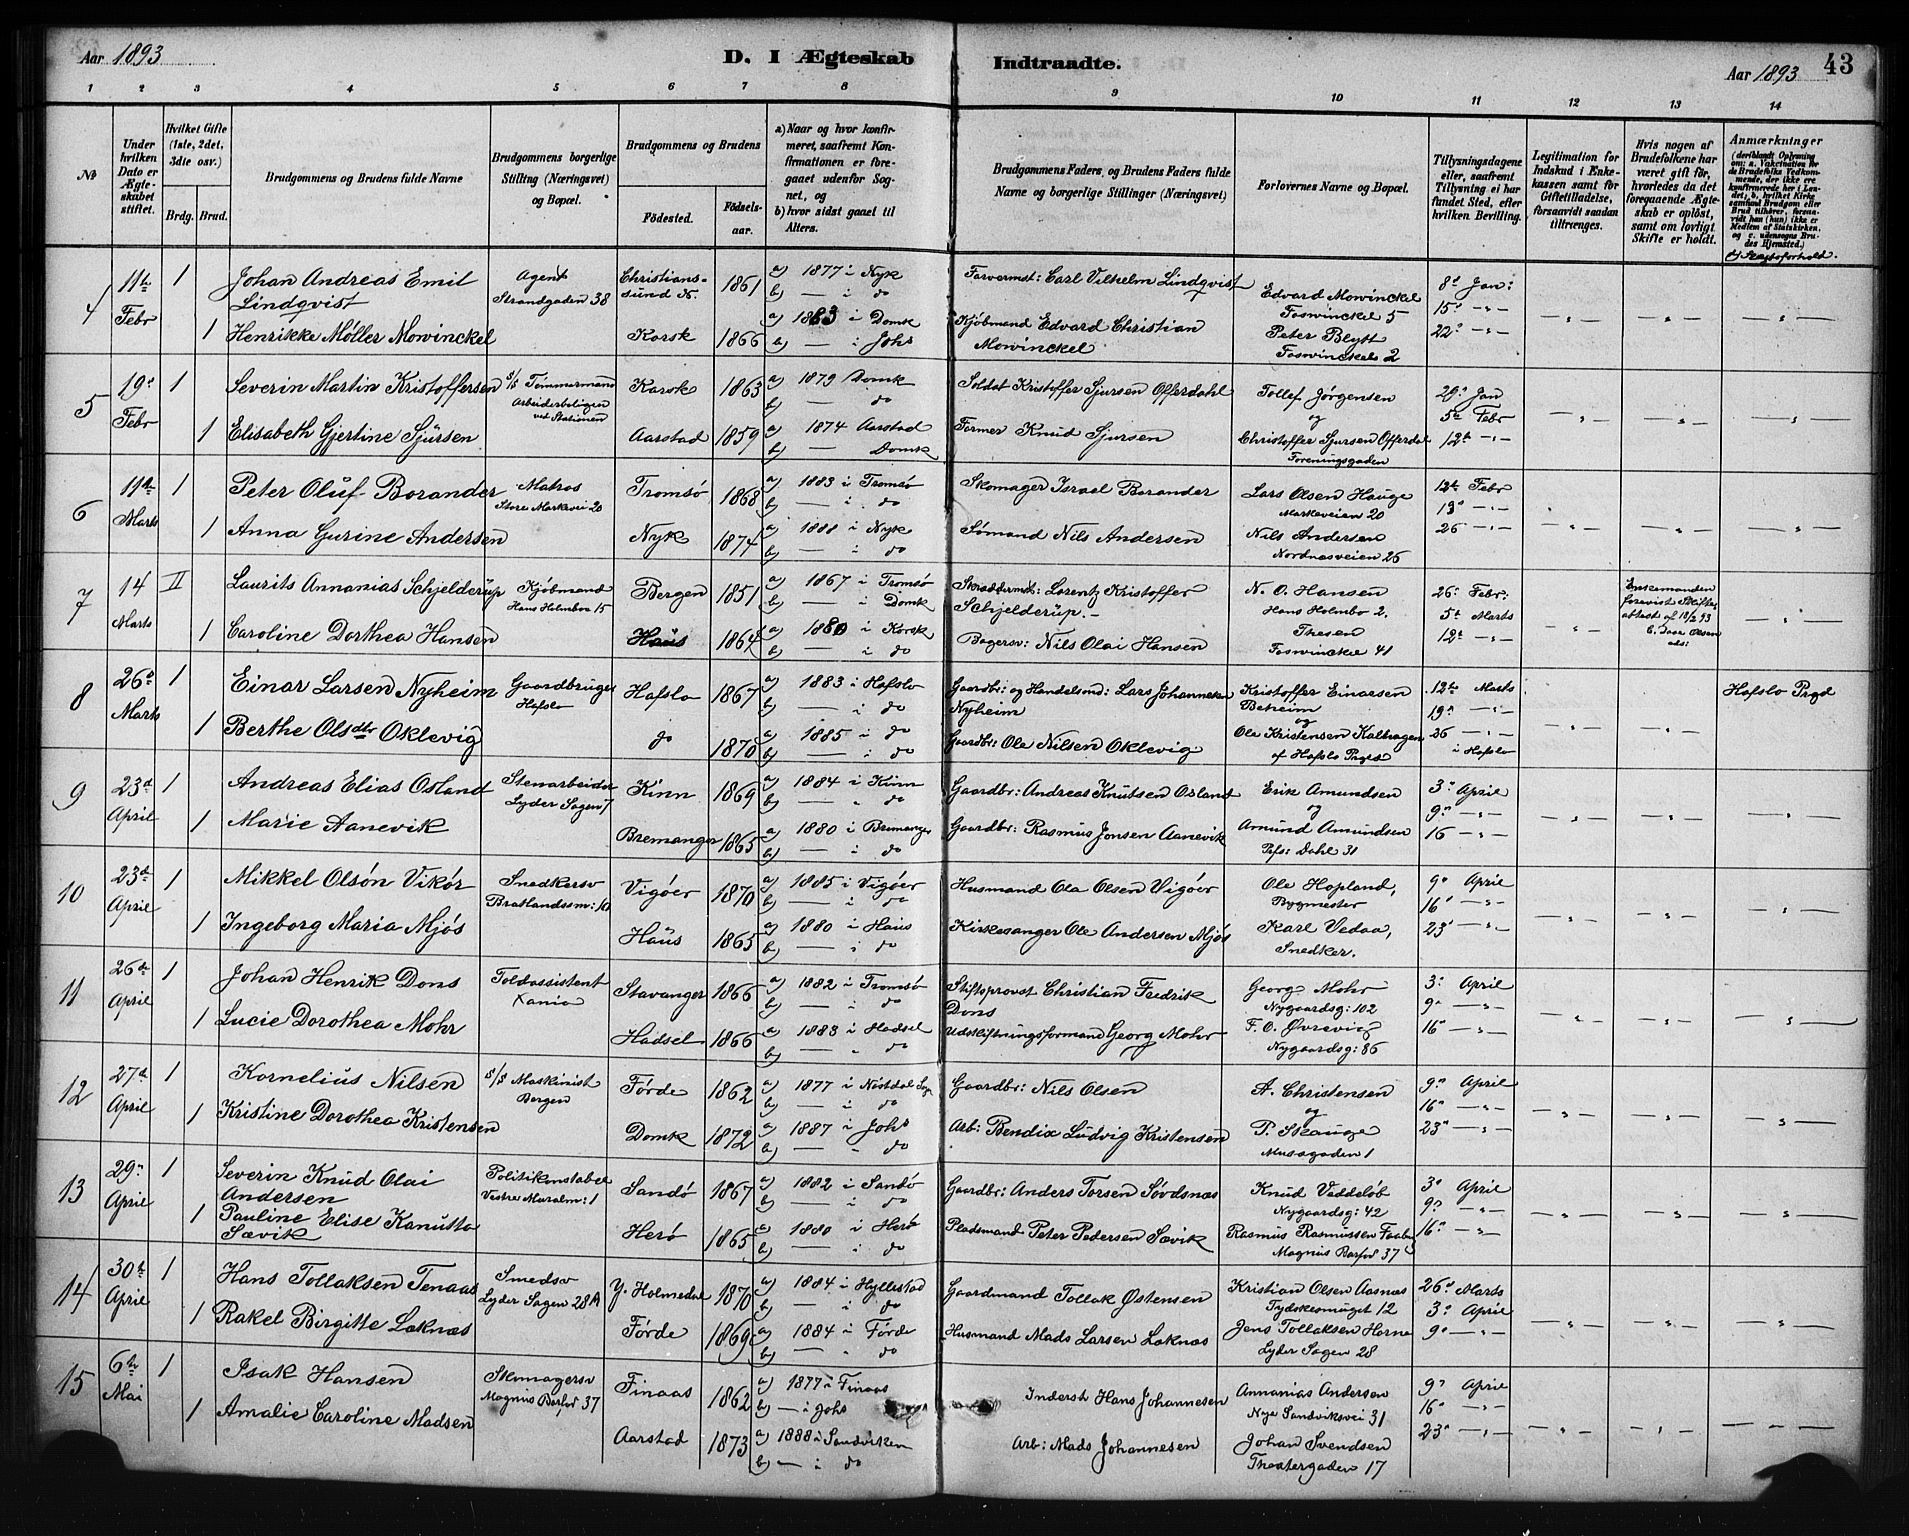 Aar 1893
D. I Ægteskab Indtraadte.
Aar 1893 43
1 2 3 4 5 6 7 8 9 10 11 12 13 14
No
Under hvilken Dato er Ægteskabet stiftet.
Hvilket Gifte (1ste, 2det, 3die osv.)
Brdg. Brud.
Brudgommens og Brudens fulde Navne
Brudgommens borgerlige Stilling (Næringsvei) og Bopæl.
Brudgommens og Brudens
Fødested. Fødselsaar.
a) Naar og hvor konfirmeret, saafremt Konfirmationen er foregaaet udenfor Sognet, og
b) hvor sidst gaaet til Alters.
Brudgommens Faders, og Brudens Faders fulde Navne og borgerlige Stillinger (Næringsvei)
Forlovernes Navne og Bopæl.
Tillysningsdagene eller, saafremt Tillysning ei har fundet Sted, efter hvilken Bevilling.
Legitimation for Indskud i Enkekassen samt for Giftetilladelse, forsaavidt saadan tiltrænges.
Hvis nogen af Brudefolkene har været gift før, hvorledes da det foregaaende Ægteskab er opløst, samt om lovligt Skifte er holdt.
Anmærkninger
4 11te Febr 1 Johan Andreas Emil Lindqvist Agent Strandgaden 38 Christianssund N. 1861 a) 1877 i Nyk b) — i do Farvermst: Carl Vilhelm Lindqvist Edvard Mowinckel Foswinckel 5 8de Jan:
1 Henrikke Møller Mowinckel Korsk 1866 a) 1883 i Domk b) — i Johs Kjøbmand Edvard Christian Mowinckel Peter Blytt Foswinckels 2 15 22
5 19 Febr 1 Severin Martin Kristoffersen s/s Tømmermand Arbeiderboligen ved Stationen Korsk 1863 a) 1879 Domk b) — do Soldat Kristoffer Sjursen Offerdahl Tollef Jørgensen og 29 Jan
1 Elisabeth Gjertine Sjursen Aarstad 1859 a) 1874 Aarstad b) — Domk Former Knud Sjursen Christoffer Sjursen Offerdal Foreningsgaden 5te Febr 12te
6 11te Marts 1 Peter Oluf Borander Matros Store Markevei 20 Tromsø 1868 a) 1883 i Tromsø b) — i do Skomager Israel Borander Lars Olsen Hauge Markeveien 20 12te Febr
1 Anna Gurine Andersen Nyk 1874 a) 1888 i Nyk b) — i do Sømand Nils Andersen Nils Andersen Nordnæsveien 26 19 26
7 14 Marts II Laurits Annanias Schjelderup Kjøbmand Hans Holmboe 15 Bergen 1851 a) 1867 i Tromsø b) — i Domk Skræddermst: Lorentz Kristoffer Schjelderup. N. O. Hansen Hans Holmbo 2. 26 Febr: Enkemanden forevist Skifteattest af 18/2 93
1 Caroline Dorthea Hansen Haus 1864 a) 1880 i Korsk b) — i do Bagersv: Nils Olai Hansen Thesen Foswinckel 41 5te Marts 12te
8 26 Marts 1 Einar Larsen Nyheim Gaardbruger Hafslo Hafslo 1867 a) 1883 i Hafslo b) — i do Gaardbr: og Handelsmd: Lars Johannesen Nyheim Kristoffer Einarsen Beheim og 12te Marts Hafslo Prgd
1 Berthe Olsdtr Oklevig do 1870 a) 1885 i do b) — i do Gaardbr: Ole Nilsen Oklevig Ole Kristensen Kalhagen af Hafslo Prgd 19 26 i Hafslo
9 23de April 1 Andreas Elias Osland Stenarbeider Lyder Sagen 7 Kinn 1869 a) 1884 i Kinn b) — i do Gaardbr: Andreas Knutsen Osland Erik Amundsen og 3 April
1 Marie Aanevik Bremanger 1865 a) 1880 i Bremanger b) — i do Gaardbr: Rasmus Jonsen Aanevik Amund Amundsen Prfs: Dahl 31 9 16
10 23de April 1 Mikkel Olsøn Vikør Snedkersv Bratlandssm: 10 Vigøer 1870 a) 1885 i Vigøer b) — i do Husmand Ola Olsen Vigøer Ole Hopland, Bygmester 9 April
1 Ingeborg Maria Mjøs Haus 1865 a) 1880 i Haus b) — i do Kirkesanger Ole Andersen Mjøs Karl Vedaa, Snedker. 16 23
11 26de April 1 Johan Henrik Dons Toldassistent Xania Stavanger 1866 a) 1882 i Tromsø b) — i do Stiftsprovst Christian Fredrik Dons Georg Mohr Nygaardsg: 102 3 April
1 Lucie Dorothea Mohr Hadsel 1866 a) 1883 i Hadsel b) — do Udskiftningsformand Georg Mohr F. O. Øvrevig Nygaardsg: 86 9 16
12 27de April 1 Kornelius Nilsen s/s Maskinist Bergen Førde 1862 a) 1877 i Nøstdal Sogn b) — i do Gaardbr: Nils Olsen A. Christensen og 9 April
1 Kristine Dorothea Kristensen Domk 1872 a) 1887 i Johs b) — do Arb: Bendix Ludvig Kristensen P. Skauge Musagaden 1 16 23
13 29 April 1 Severin Knud Olai Andersen Politikonstabel Vestre Muralm: 1 Sandø 1867 a) 1882 i Sandø b) — i do Gaardbr: Anders Torsen Søvdsnæs Knud Veddeløb Nygaardsg: 42 3 April
1 Pauline Elise Kanutta Sævik Herø 1865 a) 1880 i Herø b) — i do Pladsmand Peter Pedersen Sævik Rasmus Rasmussen Faaberg Magnus Barfod 37 9 16
14 30te April 1 Hans Tollaksen Tenaas Smedsv Lyder Sagen 28A Y. Holmedal 1870 a) 1884 i Hyllestad b) — i do Gaardmand Tollak Østensen Kristian Olsen Aasnæs Tydskesmuget 12 26 Marts
1 Rakel Birgitte Løknæs Førde 1869 a) 1884 i Førde b) — do Husmand Mads Larsen Løknæs Jens Tollaksen Horne Lyder Sagen 28 3 April 9
15 6te Mai 1 Isak Hansen Skomagersv Magnus Barfod 37 Finaas 1862 a) 1877 i Finaas b) — i Johs Inderst Hans Johannesen Annanias Andersen Nye Sandviksvei 31 9 April
1 Amalie Caroline Madsen Aarstad 1873 a) 1888 i Sandviken b) — i do Arb: Mads Johannesen Johan Svendsen Theatergaden 17 16 23